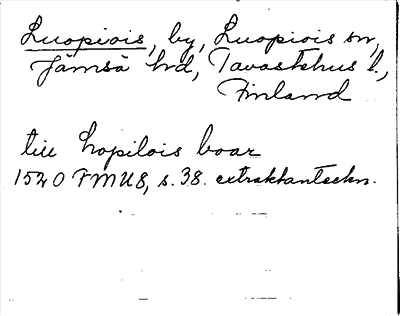 Luopiois, by, Luopiois sn,
Jämsä hd, Tavastehus l.,
Finland
till Lopilois boar
1540 FMU8, s. 38. extraktanteckn.